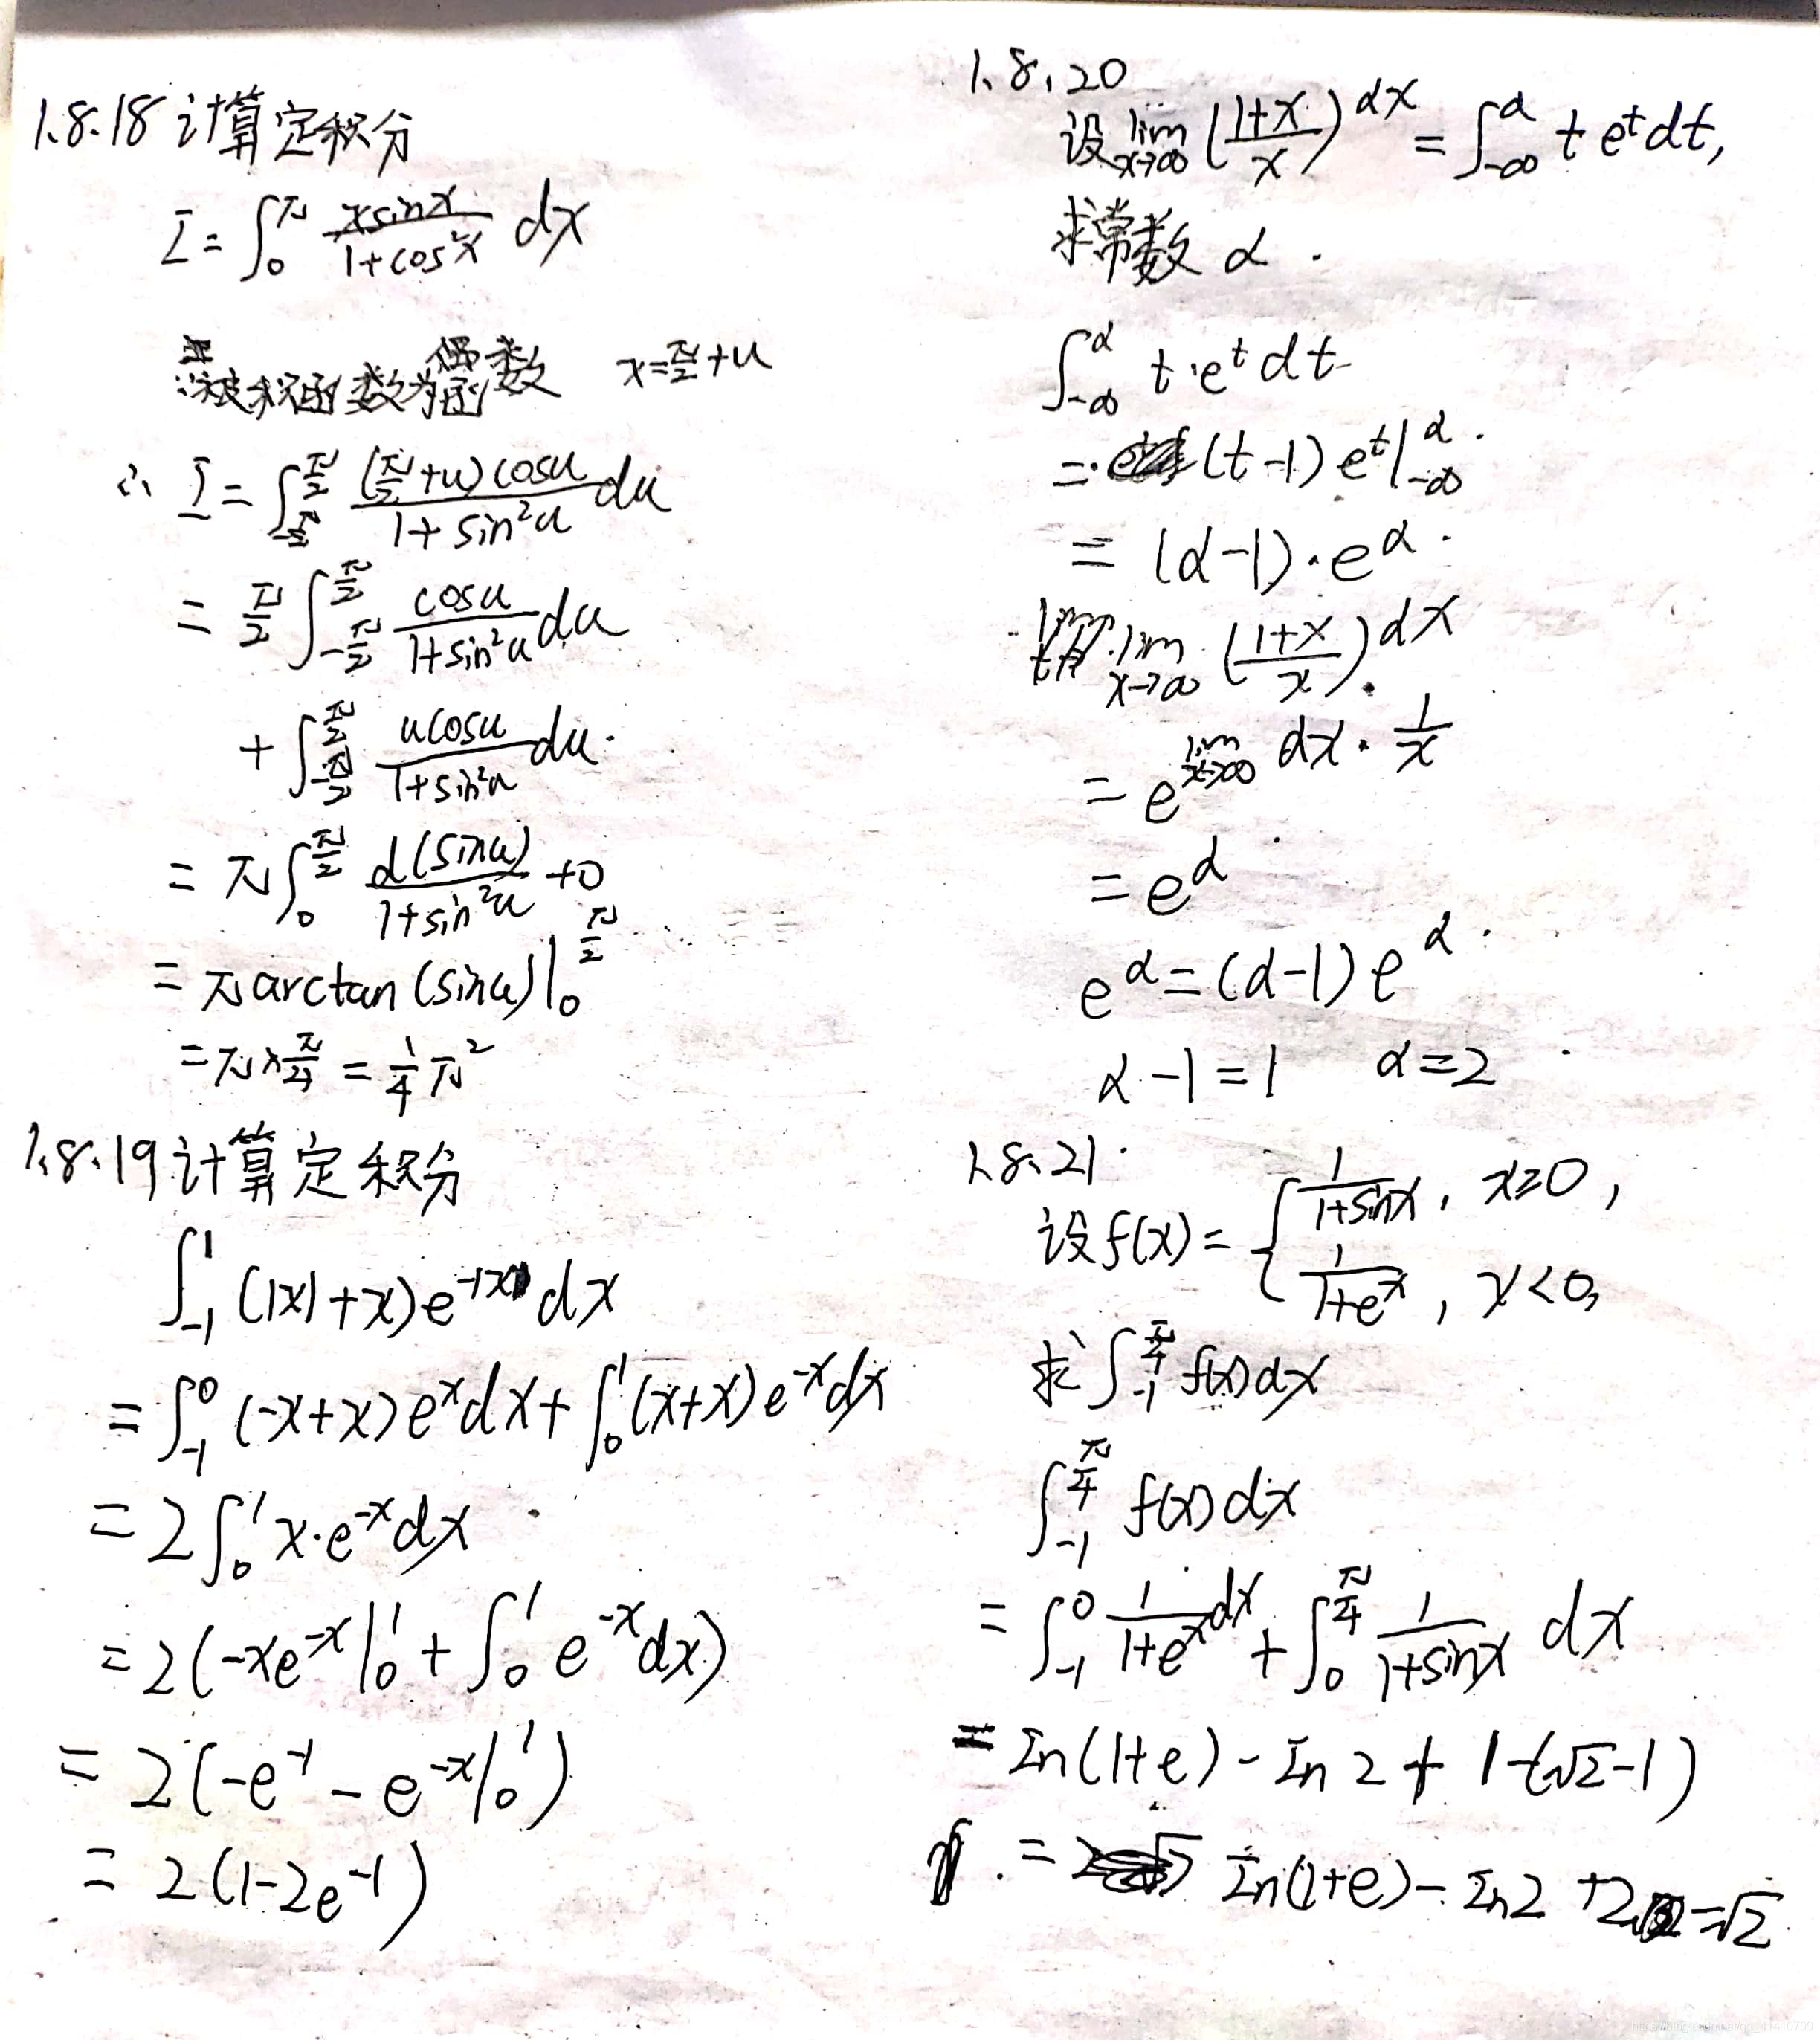 1.8.18 计算定积分
I = ∫₀^π \frac{x sin x}{1+cos²x} dx
∵被积函数为偶函数 x=\frac{π}{2}+u
∴ I = ∫_{-\frac{π}{2}}^{\frac{π}{2}} \frac{(\frac{π}{2}+u)cosu}{1+sin²u} du
= \frac{π}{2} ∫_{-\frac{π}{2}}^{\frac{π}{2}} \frac{cosu}{1+sin²u} du
+ ∫_{-\frac{π}{2}}^{\frac{π}{2}} \frac{ucosu}{1+sin²u} du.
= π ∫_0^{\frac{π}{2}} \frac{d(sinu)}{1+sin²u} +0
= π arctan(sinu)|_0^{\frac{π}{2}}
= π×\frac{π}{4} = \frac{1}{4}π²
1.8.19 计算定积分
∫_{-1}^{1} (|x|+x)e^{-|x|} dx
= ∫_{-1}^{0} (-x+x)e^x dx + ∫_0^1 (x+x)e^{-x} dx
= 2∫_0^1 x·e^{-x} dx
= 2(-xe^{-x}|_0^1 + ∫_0^1 e^{-x} dx)
= 2(-e^{-1} - e^{-x}|_0^1)
= 2(1-2e^{-1})
1.8.20
设 lim_{x→∞} (\frac{1+x}{x})^{αx} = ∫_{-∞}^{α} t e^t dt,
求常数 α.
∫_{-∞}^{α} t·e^t dt
= (t-1)e^t|_{-∞}^{α}
= (α-1)·e^α
lim_{x→∞} (\frac{1+x}{x})^{αx}
= e^{lim_{x→∞} αx·\frac{1}{x}}
= e^α
e^α = (α-1)e^α
α-1=1 α=2
1.8.21
设f(x) = { \frac{1}{1+sinx}, x≥0,
\frac{1}{1+e^x}, x<0,
求 ∫_{-1}^{\frac{π}{4}} f(x)dx
∫_{-1}^{\frac{π}{4}} f(x)dx
= ∫_{-1}^{0} \frac{1}{1+e^x} dx + ∫_0^{\frac{π}{4}} \frac{1}{1+sinx} dx
= In(1+e) - In2 + 1-(√2-1)
= In(1+e) - In2 +2-√2